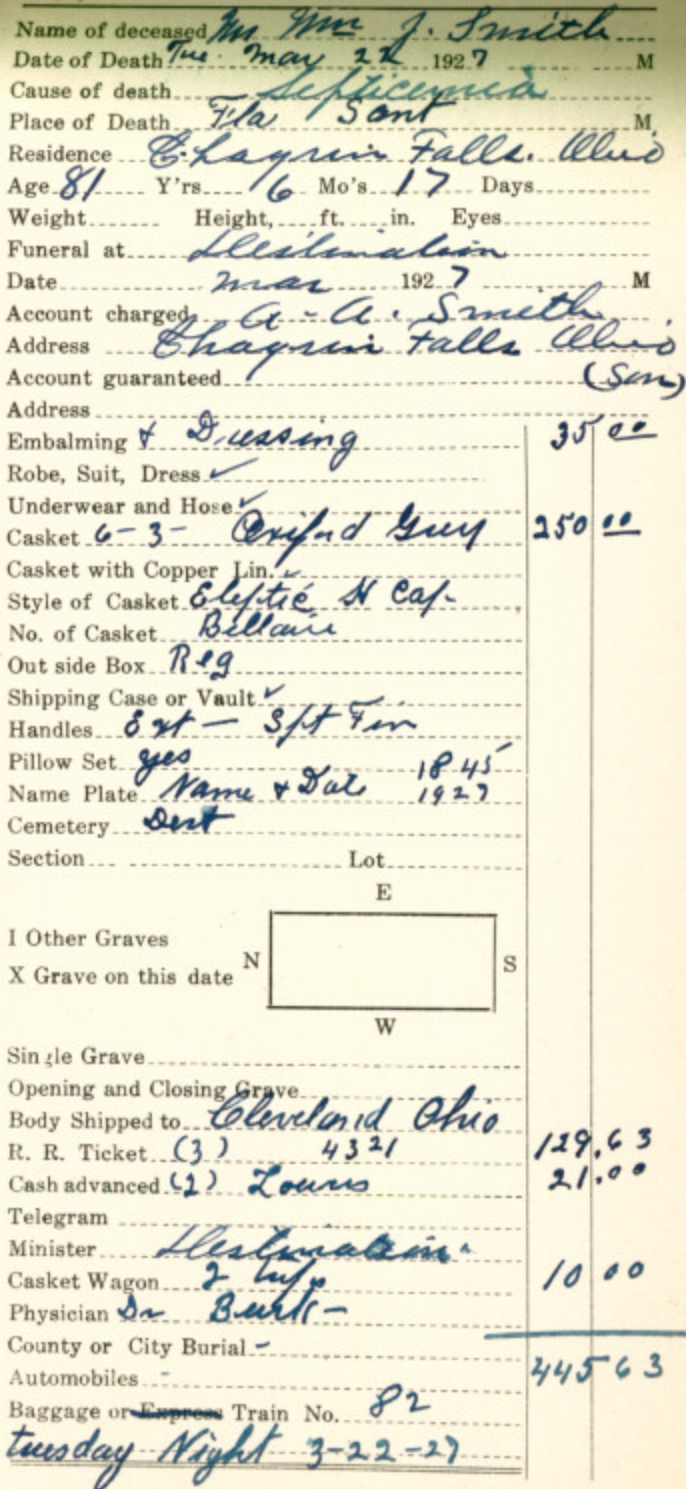 Name of deceased Mr Wm J. Smith
Date of Death Tue. May 22 1927 M
Cause of death Septicemia
Place of Death Fla Sant M
Residence Chagrin Falls. Ohio
Age 81 Y'rs 6 Mo's 17 Days
Weight Height, ft. in. Eyes
Funeral at Destination
Date mar 1927 M
Account charged A-A. Smith
Address Chagrin Falls Ohio
Account guaranteed (Son)
Address
Embalming & Dressing 35 00
Robe, Suit, Dress ✓
Underwear and Hose ✓
Casket 6-3- Oxiford Grey 250 00
Casket with Copper Lin. ✓
Style of Casket Eleptic H Cap-
No. of Casket Bellaire
Out side Box Reg
Shipping Case or Vault ✓
Handles Ext - Spt Fin
Pillow Set yes 1845
Name Plate Name & Date 1927
Cemetery Dest
Section Lot
E
I Other Graves
N S
X Grave on this date
W
Single Grave
Opening and Closing Grave
Body Shipped to Cleveland Ohio
R. R. Ticket (3) 4321 129.63
Cash advanced (2) Lowrs 21.00
Telegram
Minister Destination
Casket Wagon 2 10 00
Physician Dr Burk-
County or City Burial -
Automobiles - 445 63
Baggage or Express Train No. 82
tuesday Night 3-22-27